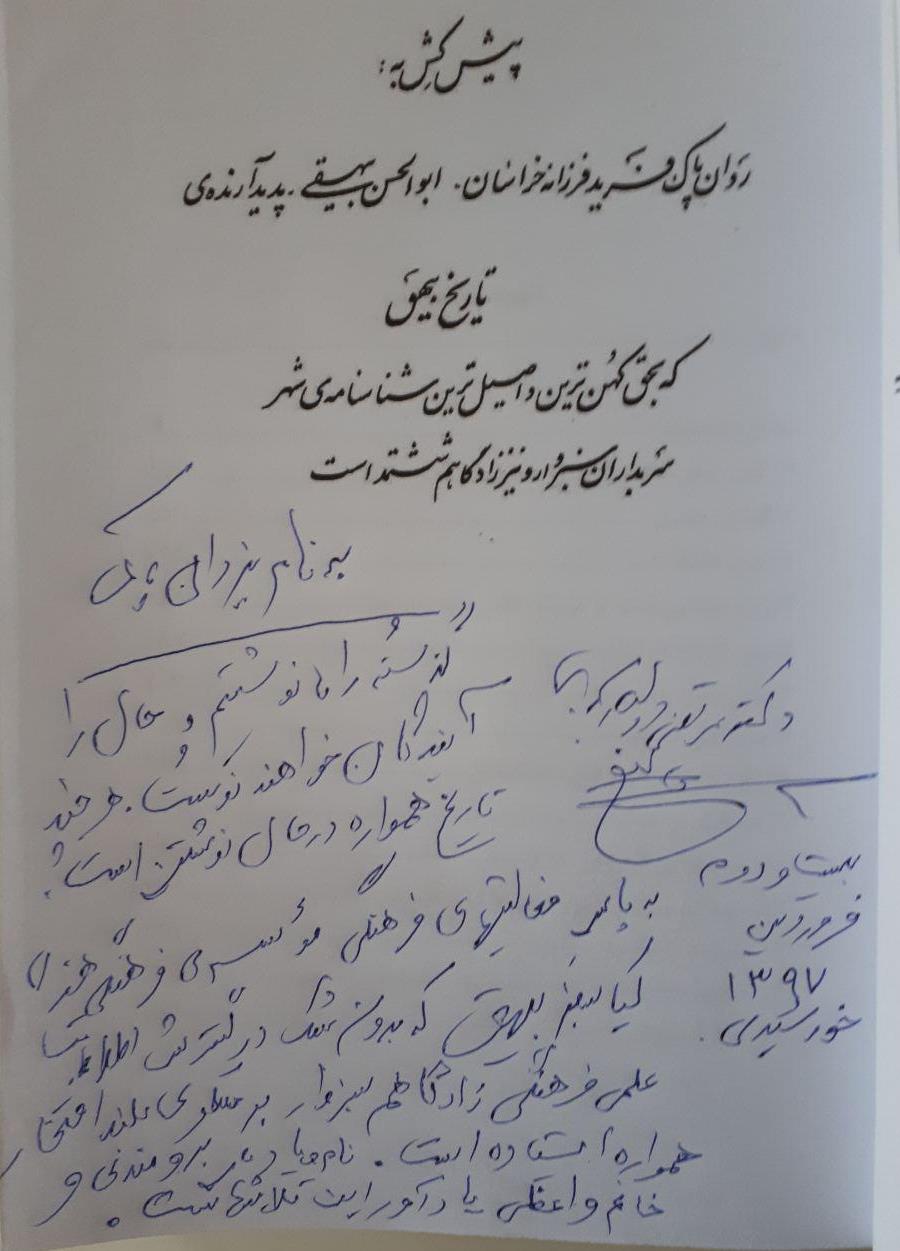 پیش کش به:
روان پاک فرید فرزانه خراسان. ابوالحسن بیهقی. پدیدآرنده‌ی
تاریخ بیهق
که بحق کهن ترین و اصیل ترین شناسنامه‌ی شهر
سربداران سبزوار و نیز زادگاهم ششتمد است
به نام یزدان پاک
«گذشته را ما نوشتیم و حال را
آیندگان خواهند نوشت. هر چند
تاریخ همواره در حال نوشتن است»
دکتر
به پاس فعالیتهای فرهنگی مؤسسه‌ی فرهنگی هنری
کیا سبز بیهق که بدون شک در گسترش اطلاعات
علمی فرهنگی زادگاهم سبزوار بر سکوی بلند افتخار
همواره ایستاده است. برومندی و
خانم واعظی یادآور این تلاشهاست.
بیست و دوم
فروردین
۱۳۹۷
خورشیدی.